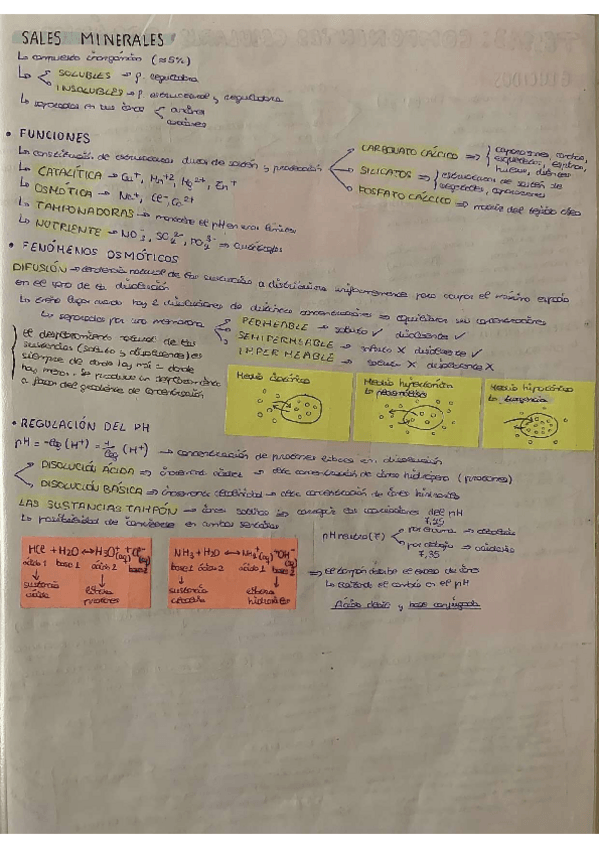 SALES MINERALES
↳ compuesto inorgánico (≈5%)
↳ SOLUBLES → f. reguladora
INSOLUBLES → f. estructural y reguladora
↳ separadas en sus iones aniones
cationes
• FUNCIONES
↳ constitución de estructuras duras de sostén y protección
CARBONATO CÁLCICO ⇒ caparazones, conchas,
esqueletos, espinas,
huesos, dientes
SILICATOS ⇒ estructuras de sostén de
vegetales, caparazones
FOSFATO CÁLCICO ⇒ matriz del tejido óseo
↳ CATALÍTICA → Cu⁺, Mn⁺², Mg²⁺, Zn⁺
↳ OSMÓTICA → Na⁺, Cl⁻, Ca²⁺
↳ TAMPONADORAS → mantiene el pH en unos límites
↳ NUTRIENTE → NO₃⁻, SO₄²⁻, PO₄³⁻ →
• FENÓMENOS OSMÓTICOS
DIFUSIÓN → tendencia natural de las sustancias a distribuirse uniformemente para ocupar el máximo espacio
en el seno de la disolución
↳ tiene lugar cuando hay 2 disoluciones de distintas concentraciones ⇒ equilibran sus concentraciones
↳ separadas por una membrana
PERMEABLE → soluto ✓ disolvente ✓
SEMIPERMEABLE → soluto X disolvente ✓
IMPERMEABLE → soluto X disolvente X
el desplazamiento natural de las
sustancias (soluto y disolvente) es
siempre de donde hay más a donde
hay menos. Se produce un desplazamiento
a favor del gradiente de concentración
Medio isotónico
Medio hipertónico
↳ plasmólisis
Medio hipotónico
↳ turgencia
• REGULACIÓN DEL PH
pH = -log (H⁺) = 1/log (H⁺) → concentración de protones libres en disolución
↳ DISOLUCIÓN ÁCIDA ⇒ incrementa acidez → alta concentración de iones hidrógeno (protones)
↳ DISOLUCIÓN BÁSICA ⇒ incrementa alcalinidad → alta concentración de iones hidroxilo
LAS SUSTANCIAS TAMPÓN → iones salinos
↳ posibilidad de convertirse en ambos sentidos
pH neutro (7)
7,35
HCl + H₂O ↔ H₃O⁺(aq) + Cl⁻(aq)
ácido 1 base 1 ácido 2 base 2
sustancia
ácida
libera
protones
NH₃ + H₂O ↔ NH₄⁺(aq) + OH⁻(aq)
base 1 ácido 1 ácido 2 base 2
sustancia
libera
⇒ el tampón absorbe el exceso de iones
↳ el cambio en el pH
Ácido débil y base conjugada